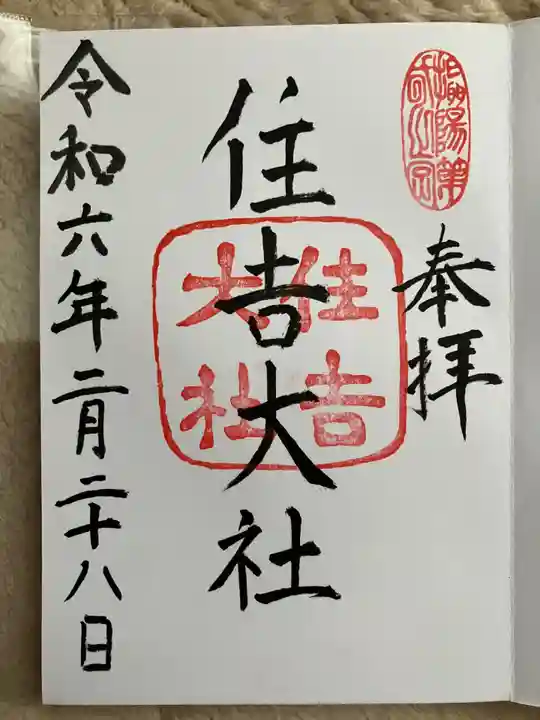 奉拝
住吉大社
住吉
大社
令和六年二月二十八日